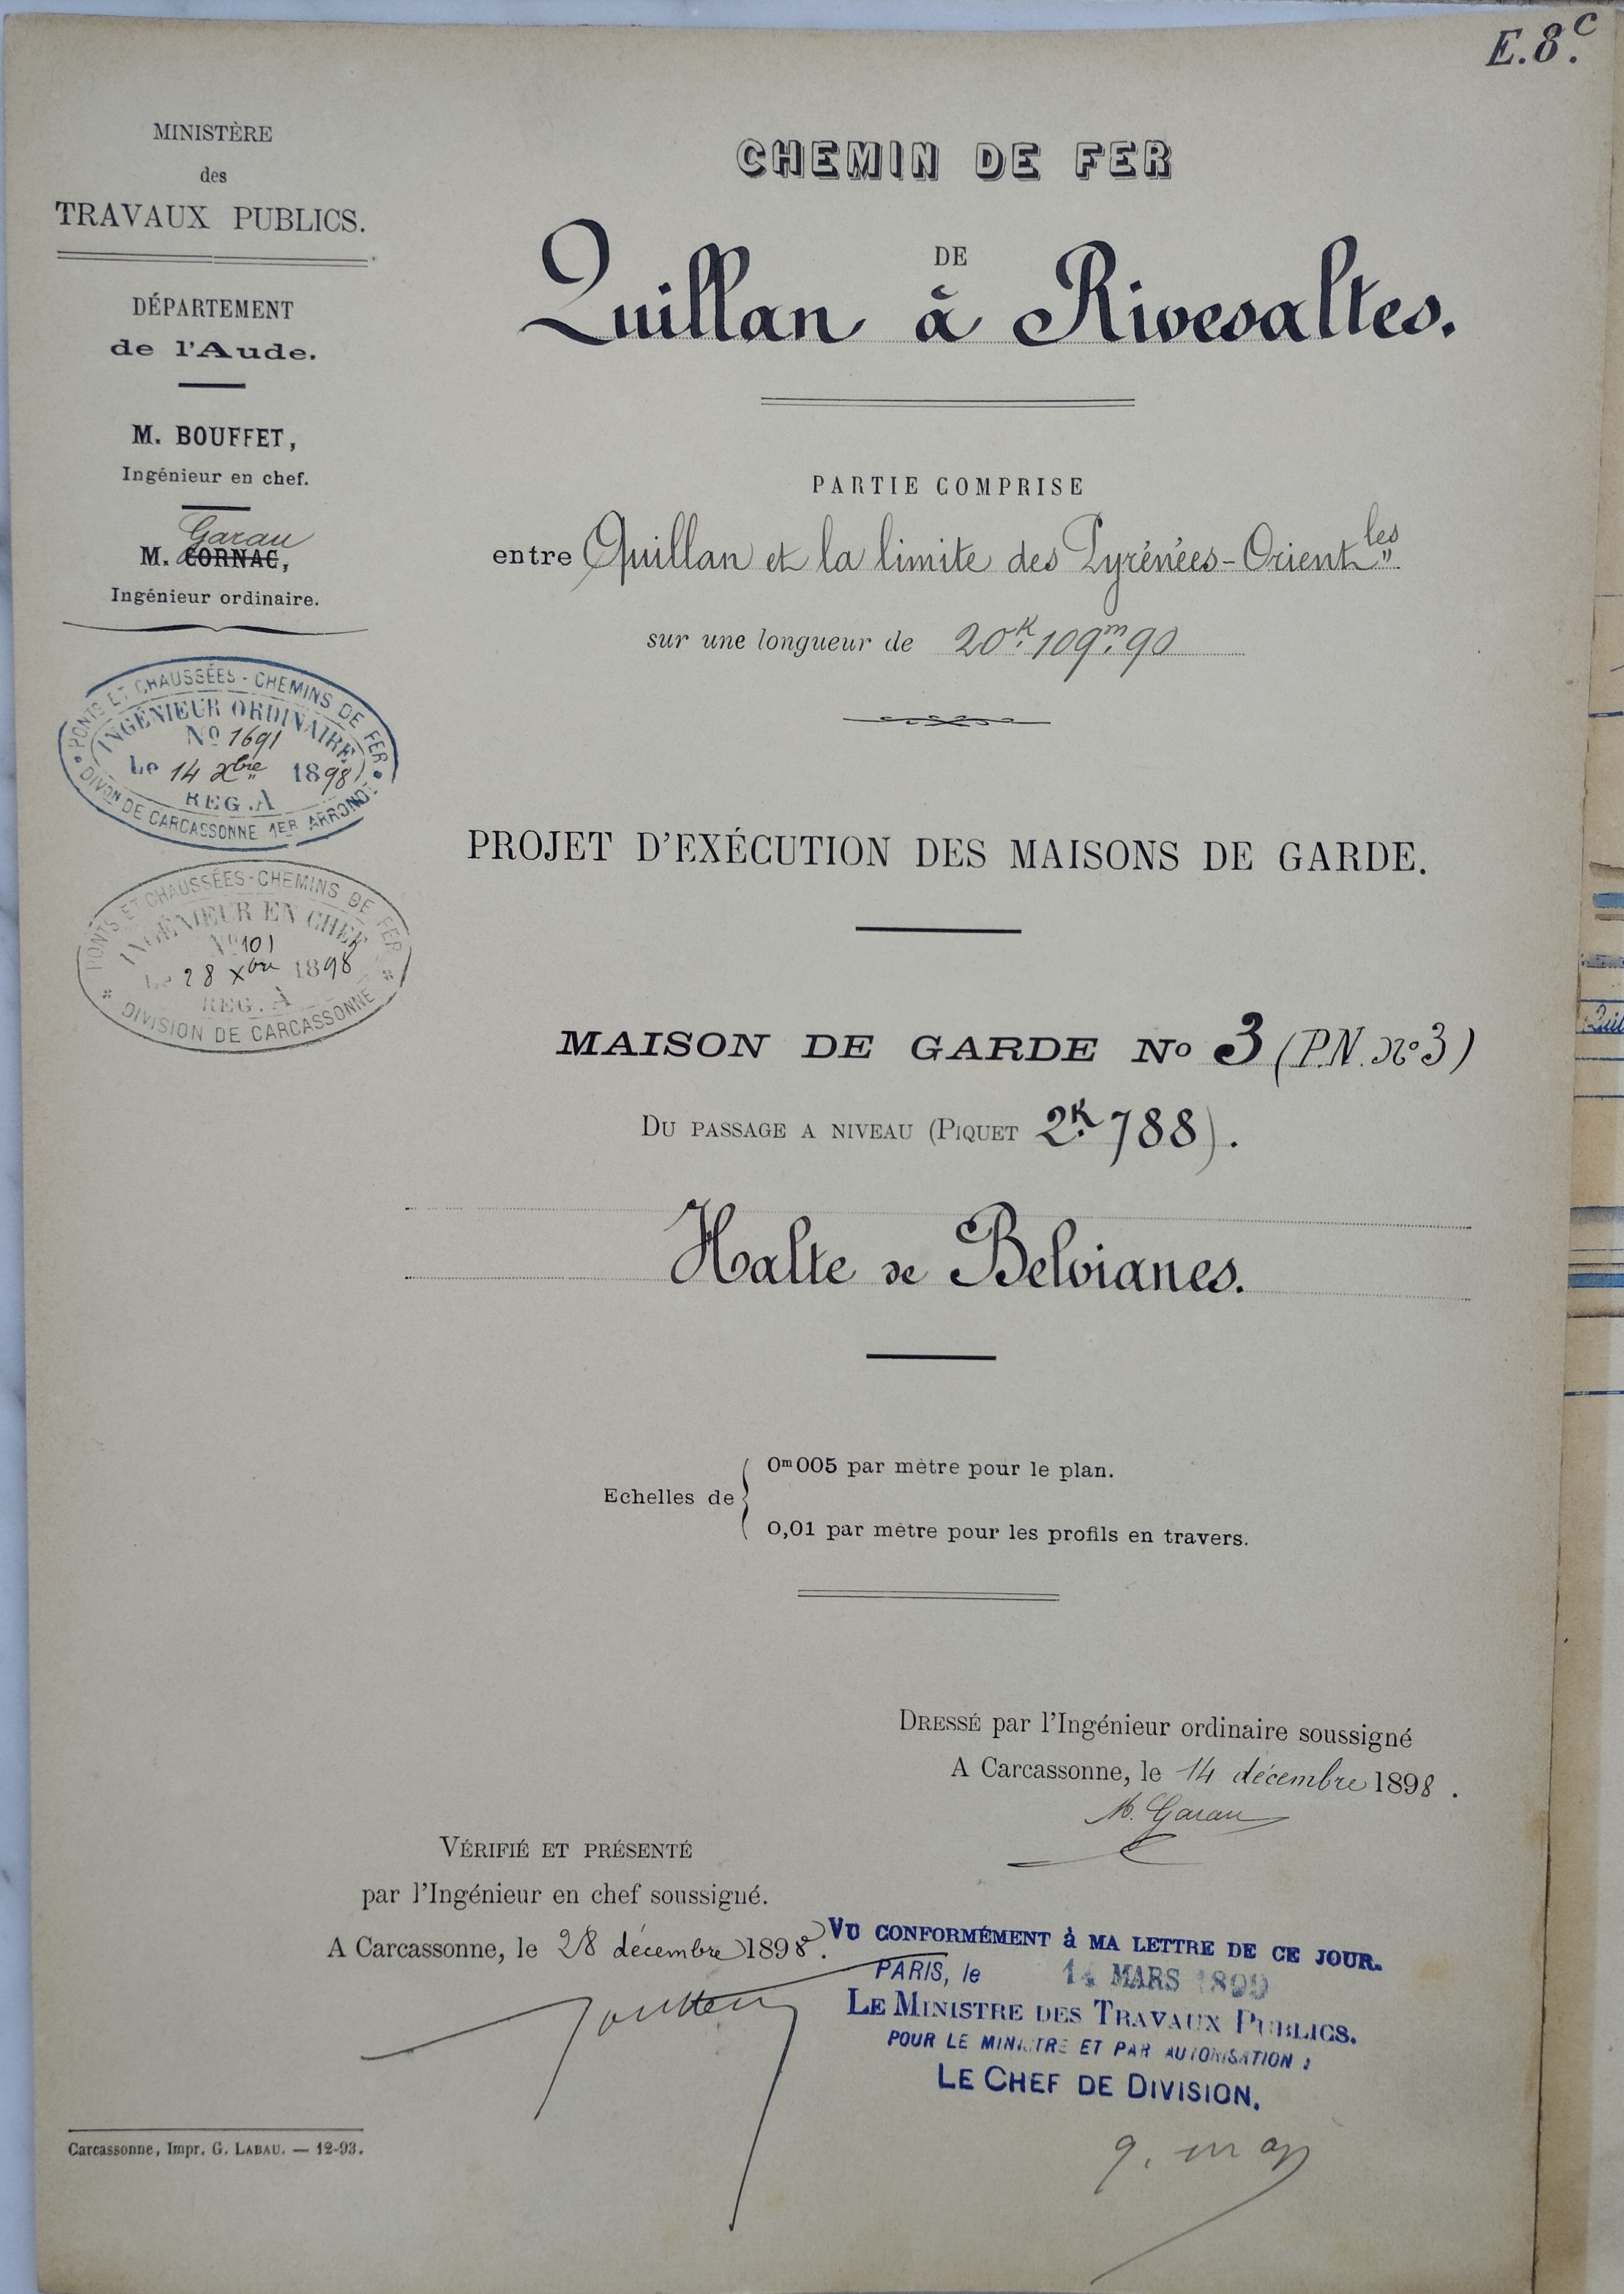 E.8.c
MINISTÈRE
des
TRAVAUX PUBLICS.
DÉPARTEMENT
de l'Aude.
M. BOUFFET,
Ingénieur en chef.
Garau
M. CORNAC,
Ingénieur ordinaire.
PONTS ET CHAUSSÉES - CHEMINS DE FER
INGÉNIEUR ORDINAIRE
No 1691
Le 14 Xbre 1898
REG. A
DIVon DE CARCASSONNE 1ER ARRONDt
PONTS ET CHAUSSÉES - CHEMINS DE FER
INGÉNIEUR EN CHEF
No 101
Le 28 Xbre 1898
REG. A
DIVISION DE CARCASSONNE
CHEMIN DE FER
DE
Quillan à Rivesaltes.
PARTIE COMPRISE
entre Quillan et la limite des Pyrénées-Orientles
sur une longueur de 20K.109m.90
PROJET D'EXÉCUTION DES MAISONS DE GARDE.
MAISON DE GARDE No 3 (P.N. no 3)
DU PASSAGE A NIVEAU (PIQUET 2K.788).
Halte de Belvianes.
Echelles de
0m005 par mètre pour le plan.
0,01 par mètre pour les profils en travers.
DRESSÉ par l'Ingénieur ordinaire soussigné
A Carcassonne, le 14 décembre 1898.
M. Garau
VÉRIFIÉ ET PRÉSENTÉ
par l'Ingénieur en chef soussigné.
A Carcassonne, le 28 décembre 1898.
VU CONFORMÉMENT à MA LETTRE DE CE JOUR.
PARIS, le 14 MARS 1899
LE MINISTRE DES TRAVAUX PUBLICS.
POUR LE MINISTRE ET PAR AUTORISATION :
LE CHEF DE DIVISION.
Carcassonne, Impr. G. LABAU. — 12-93.